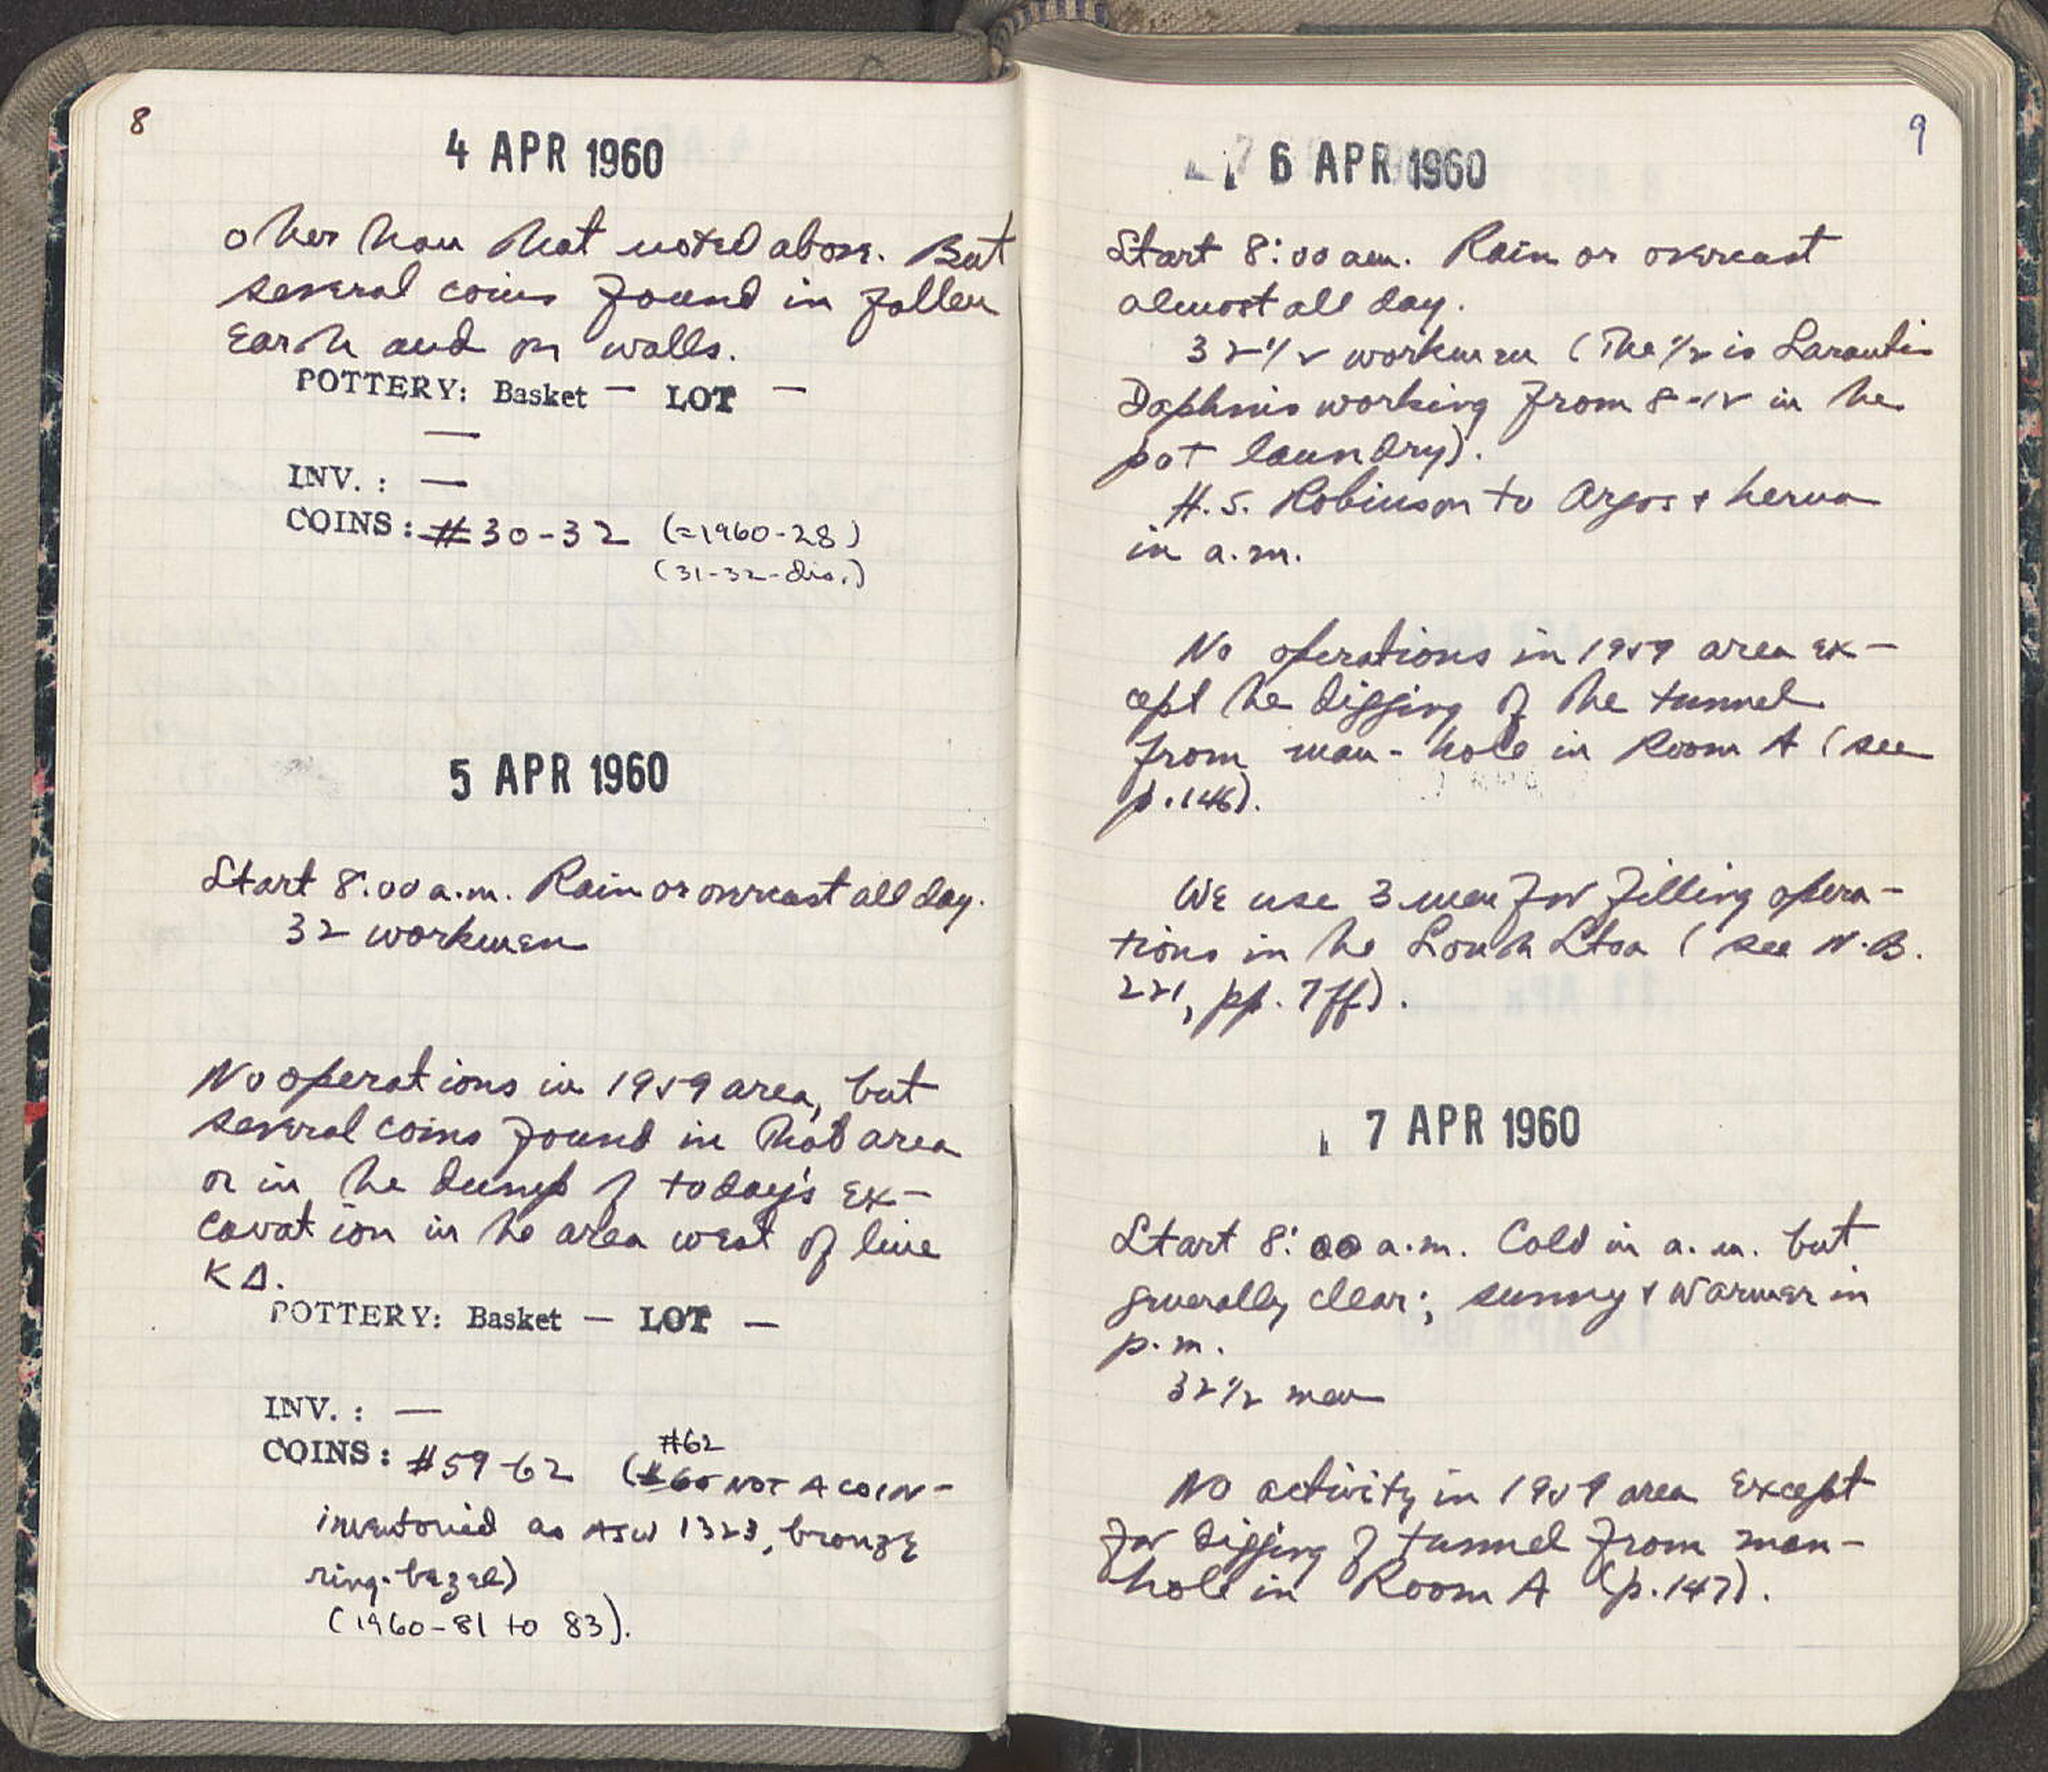 8
4 APR 1960
other than that noted above. But
several coins found in fallen
Earth and on walls.
POTTERY: Basket — LOT —
—
INV. : —
COINS: #30-32 (=1960-28)
(31-32-dis.)
5 APR 1960
Start 8:00 a.m. Rain or overcast all day.
32 workmen
No operations in 1959 area, but
several coins found in that area
or in the dump of today's ex-
cavation in the area west of line
K Δ.
POTTERY: Basket — LOT —
INV. : —
COINS: #59-62 (#60 #62 NOT A COIN-
inventoried as 1323, bronze
ring-bezel)
(1960-81 to 83).
9
6 APR 1960
Start 8:00 am. Rain or overcast
almost all day.
32 1/2 workmen (The 1/2 is Sarantis
Daphnis working from 8-12 in the
pot laundry).
H. S. Robinson to Argos + Lerna
in a.m.
No operations in 1959 area ex-
cept the digging of the tunnel
from man-hole in Room A (see
p. 146).
We use 3 men for filling opera-
tions in the South Stoa (see N.B.
221, pp. 7 ff).
7 APR 1960
Start 8:00 a.m. Cold in a.m. but
generally clear; sunny + warmer in
p.m.
32 1/2 men
No activity in 1959 area except
for digging of tunnel from man-
hole in Room A (p. 147).